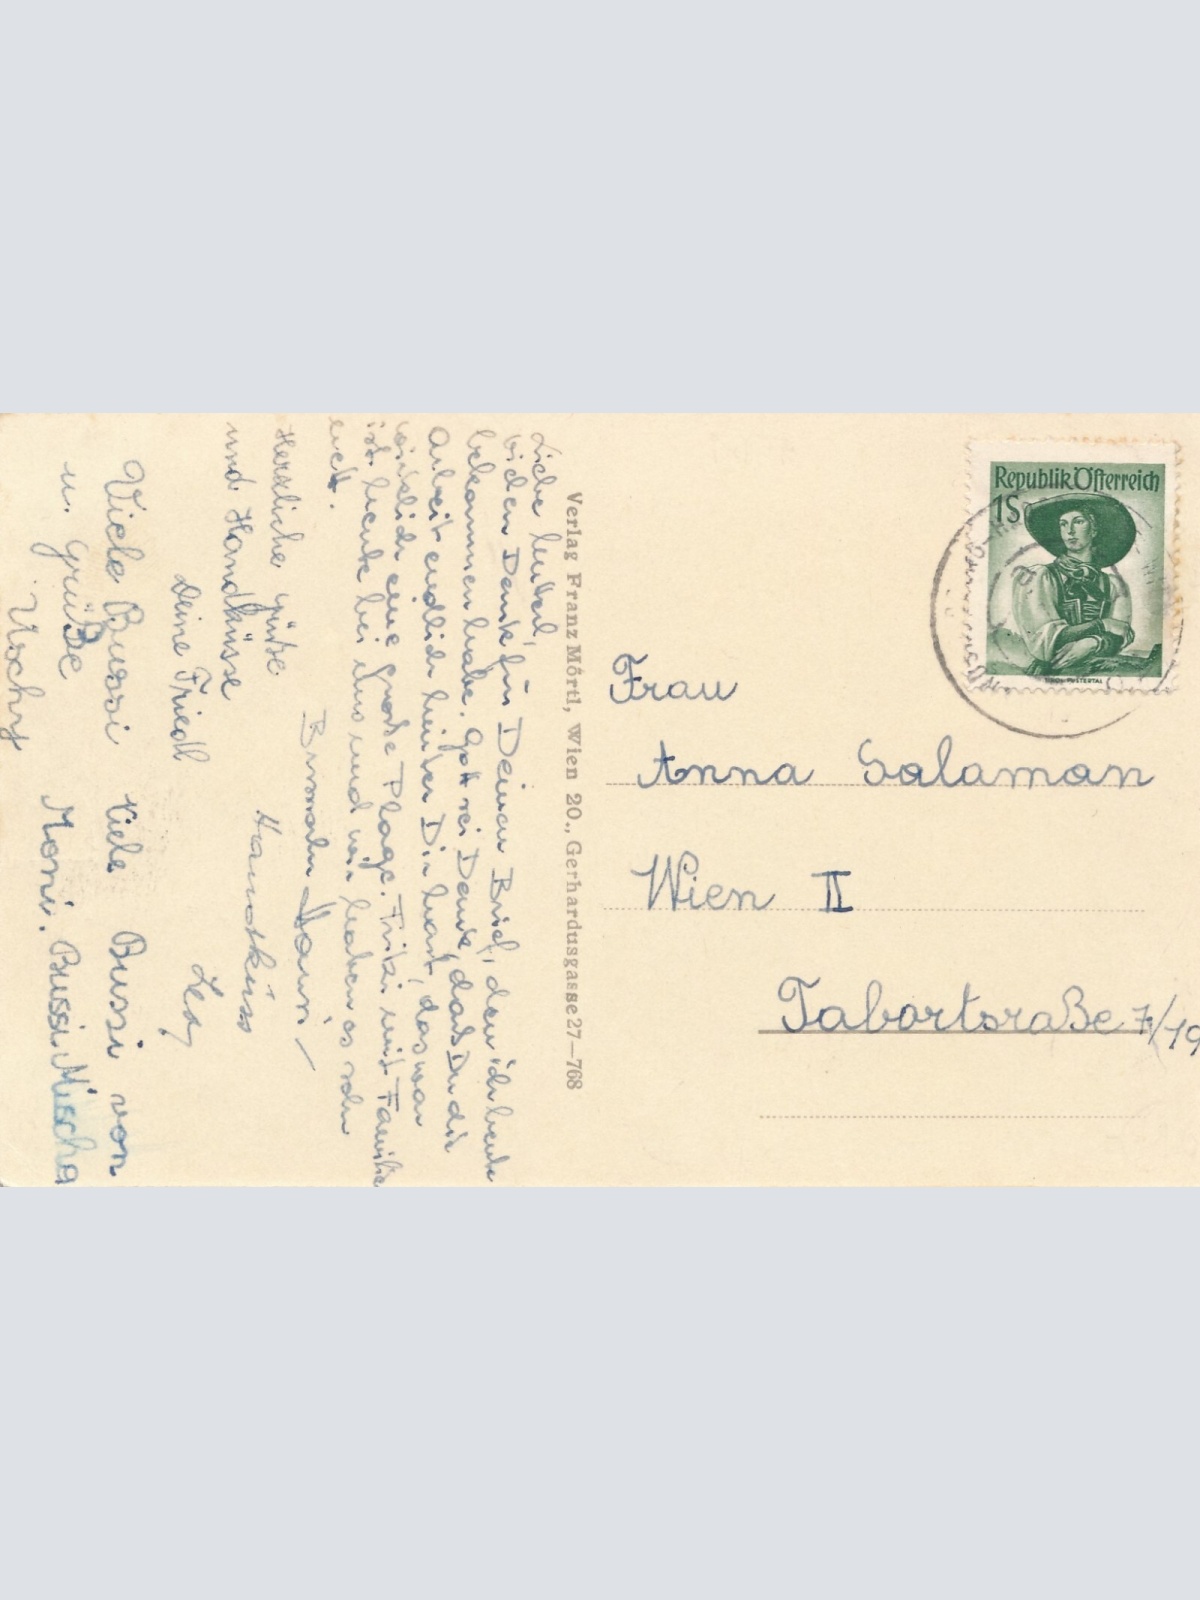 Liebe
vielen Dank für Deinen Brief, den ich heute
bekommen habe. Gott sei Dank, daß Du die
Arbeit endlich hinter Dir hast, das war
wirklich eine große Plage. Fritzi mit Familie
ist heute bei uns und wir haben es sehr
nett.
Bussi Hansi
Herzliche Grüße
und Handküsse
Deine Friedl
Handkuss
Leo
Viele Bussi
u. Grüße
Uschy
Viele Bussi von
Moni. Bussi Mischa
Verlag Franz Mörtl, Wien 20., Gerhardusgasse 27—768
Republik Österreich
1S
PUSTERTAL
Frau
Anna Salaman
Wien II
Taborstraße 7/19